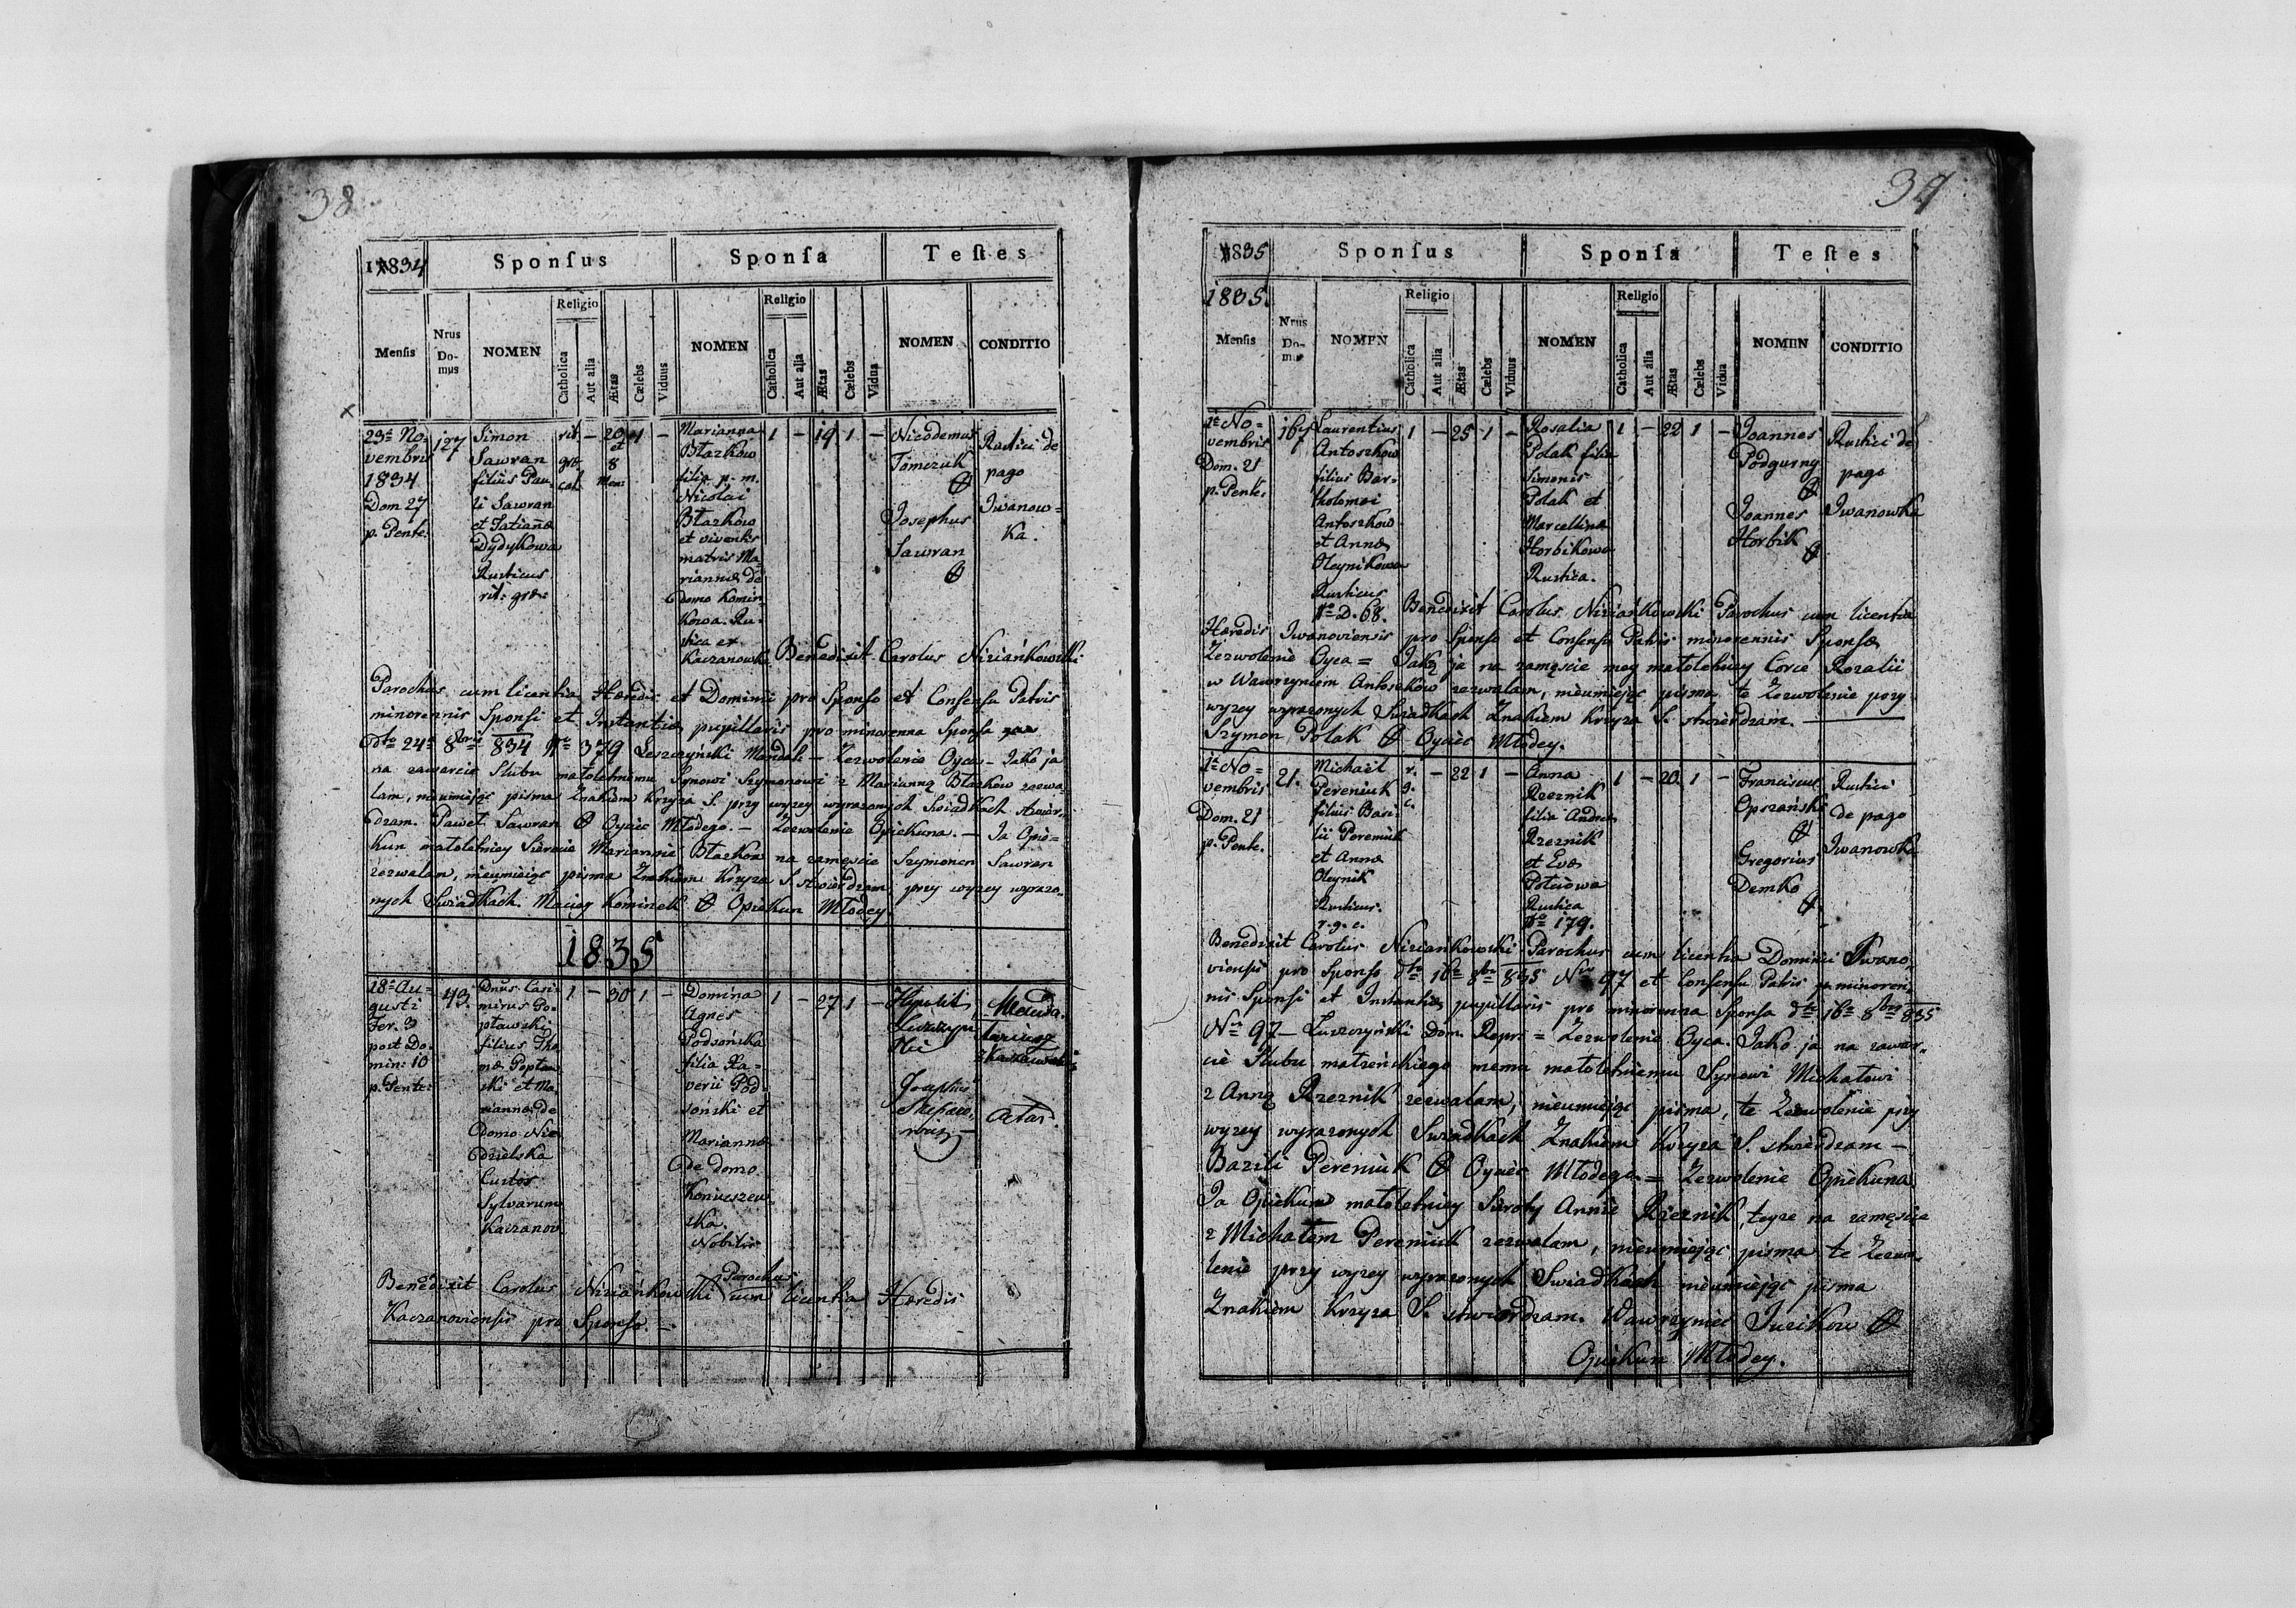 38
1834 Sponsus Sponsa Testes
Mensis Nrus Domus NOMEN Religio Catholica Aut alia Ætas Cælebs Viduus NOMEN Religio Catholica Aut alia Ætas Cælebs Vidua NOMEN CONDITIO
23a No=
vembris
1834
Dom 27
p. Pente.
127
Simon
Sawran
filius Pau
li Sawran
et Tatianæ
Dydykowa
Rusticus
rit: græ:
rit.
græ.
cat.
–
20
et
8
Men:
1
–
Marianna
Błazkow
filia p. m.
Nicolai
Błazkow
et viventis
matris Ma=
riannæ de
domo Komin
kowa. Ru=
stica ex
Kaczanowka
1 – 19 1 –
Nicodemus
Tomczuk
Josephus
Sawran
Rustici de
pago
Iwanow=
ka.
Benedixit Carolus Niziańkowski
Parochus cum licentia Hæredis et Dominii pro Sponso et Consensu Patris
minorennis Sponsi et Instantiæ pupillaris pro minorenna Sponsa
dto 24a 8bris 834 No 379 Leszczyński Mandat – Zezwolenie Oyca – Jako ja
na zawarcie Slubu małoletniemu Synowi Szymonowi z Marianną Błazkow zezwa
lam, nieumiejąc pisma Znakiem Krzyza S. przy wyzey wyrazonych Swiadkach stwier=
dzam. Paweł Sawran Oyciec Młodego. – Zezwolenie Opiekuna. – Ja Opie=
kun małoletniey Sierocie Mariannie Błazkow na zamęscie Szymonem Sawran
zezwalam, nieumiejąc pisma Znakiem Krzyza S. stwierdzam przy wyzey wyrazo=
nych Swiadkach. Maciey Kominek Opiekun Młodey
1835
18a Au=
gusti
Fer. 3
post Do=
min: 10
p. Pente:
43.
Dnus Casi=
mirus Po=
pławski
filius Tho
mæ Popław
ski et Ma
riannæ de
domo Nie
dzielska
Custos
Sylvarum
Kaczanov
1 – 30 1 –
Domina
Agnes
Podsońska
filia Xa=
verii Pod=
soński et
Mariannæ
de domo
Koniuszew
ska.
Nobilis
1 – 27 1 –
Hypolit
Manda=
tariusz
Benedixit Carolus Niziańkowski Parochus cum licentia Hæredis
Kaczanoviensis pro Sponso. –
39
1835 Sponsus Sponsa Testes
1835.
Mensis Nrus Domus NOMEN Religio Catholica Aut alia Ætas Cælebs Viduus NOMEN Religio Catholica Aut alia Ætas Cælebs Vidua NOMEN CONDITIO
1a No=
vembris
Dom. 21
p. Pente.
167
Laurentius
Antoszkow
filius Bar=
tholomei
Antoszkow
et Annæ
Oleynikowa
Rusticus
No D. 68.
1 – 25 1 –
Rosalia
Polak filia
Simonis
Polak et
Marcellinæ
Horbikowa
Rustica.
1 – 22 1 –
Joannes
Podgurny
Joannes
Horbik
Rustici de
pago
Iwanowka
Benedixit Carolus Niziańkowski Parochus cum licentia
Hæredis Iwanoviensis pro Sponso et Consensu Patris minorennis Sponsæ
Zezwolenie Oyca = Jako ja na zamęscie mey małoletniey Corce Rozalii
w Wawrzyncem Antoszkow zezwalam, nieumiejąc pisma te Zezwolenie przy
wyzey wyrazonych Swiadkach Znakiem Krzyza S. stwierdzam. –
Szymon Polak Oyciec Młodey.
1a No=
vembris
Dom. 21
p. Pente.
21.
Michael
Pereniuk
filius Basi=
lii Pereniuk
et Annæ
Oleynik
Rusticus.
r. g. c.
r.
g.
c.
– 22 1 –
Anna
Rzeznik
filia Andreæ
Rzeznik
et Evæ
Potciowa
Rustica
No 179.
1 – 20 1 –
Franciscus
Opszański
Gregorius
Demko
Rustici
de pago
Iwanowka
Benedixit Carolus Niziańkowski Parochus cum licentia Dominii Iwano=
viensis pro Sponso dto 16a 8bris 835 Nro 97 et Consensu Patris p. minoren=
nis Sponsi et Instantiæ pupillaris pro minorenna Sponsa dto 16a 8bris 835
Nro 97 – Łuszczyński Dom. Repr: = Zezwolenie Oyca. Jako ja na zawar=
cie Slubu małzeńskiego memu małoletniemu Synowi Michałowi
z Anną Rzeznik zezwalam, nieumiejąc pisma, te Zezwolenie przy
wyzey wyrazonych Swiadkach Znakiem Krzyza S. stwierdzam –
Bazili Pereniuk Oyciec Młodego = Zezwolenie Opiekuna
Ja Opiekun małoletniey Siroty Annie Rzeznik, teyze na zamęscie
z Michałem Pereniuk zezwalam, nieumiejąc pisma te Zezwo=
lenie przy wyzey wyrazonych Swiadkach nieumiejąc pisma
Znakiem Krzyza S. stwierdzam. Wawrzyniec Juzikow
Opiekun Młodey.